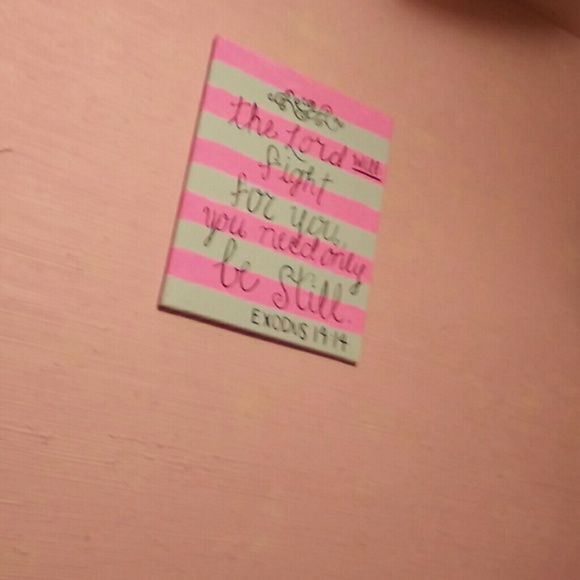 the Lord will
fight
for you,
you need only
be still.
EXODUS 14:14